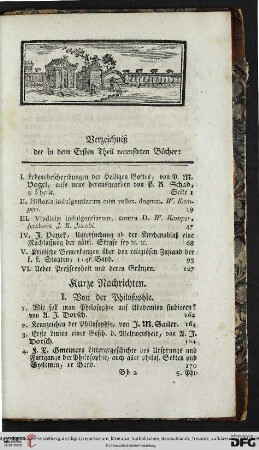 Verzeichniß
der in dem Ersten Theil recensirten Bücher:
I. Lebensbeschreibungen der Heiligen Gottes, von P. M.
Vogel, aufs neue herausgegeben von P. R. Schad,
2 Theile. Seite 1
II. Historia indulgentiarum cum reflex. dogmat. W. Kam-
peri. 19
III. Vindiciæ indulgentiarum, contra D. W. Kamper,
Authore J. E. Jacobi. 47
IV. J. Untersuchung ob der Kirchenablaß eine
Nachlassung der göttl. Strafe sey ꝛc. ꝛc. 68
V. Kritische Bemerkungen über den religiösen Zustand der
k. k. Staaten, 1. Band. 93
VI. Ueber Preßfreyheit und deren Gränzen. 127
Kurze Nachrichten.
I. Von der Philosophie.
1. Wie soll man Philosophie auf Akademien studieren?
von A. J. Dorsch. 164
2. Kennzeichen der Philosophie, von J. M. Sailer. 164
3. Erste Linien einer Gesch. d. Weltweisheit, von A. J.
Dorsch. 164
4. F. X. Gmeiners Litterargeschichte des Ursprungs und
Fortgangs der Philosophie, auch aller philos. Sekten und
Systemen, 1r Band. 170
5. Phi-